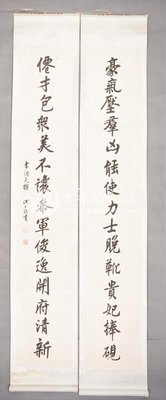 豪氣壓羣凶能使力士脫靴貴妃捧硯
僊才包衆美不讓參軍俊逸開府清新